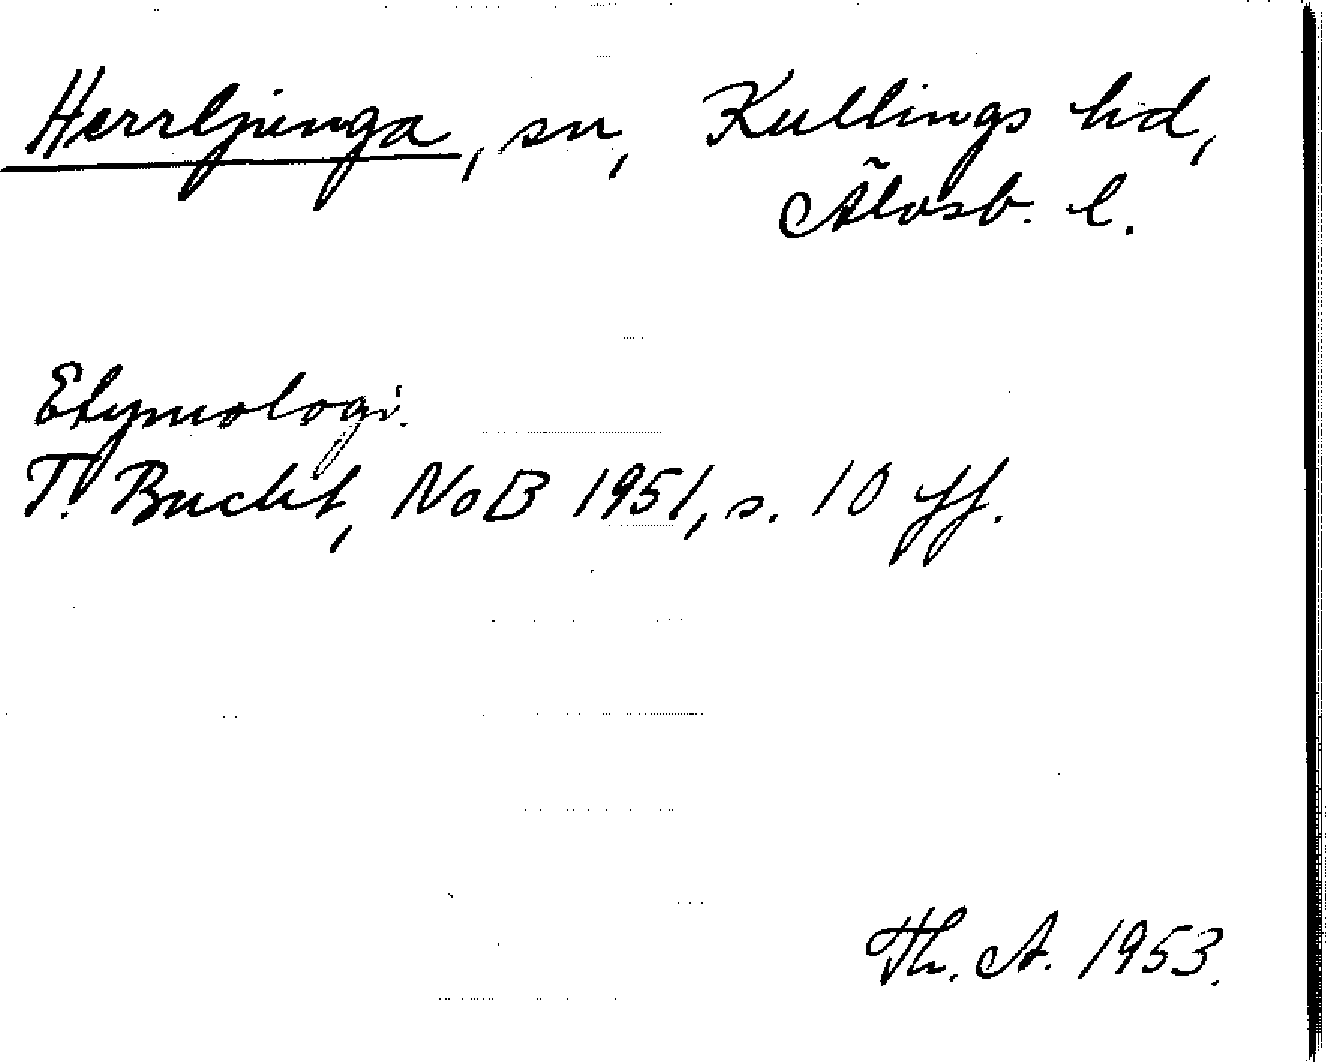 Herrljunga, sn, Kullings hd,
Älvsb. l.
Etymologi.
T. Bucht, NoB 1951, s. 10 ff.
Th. A. 1953.